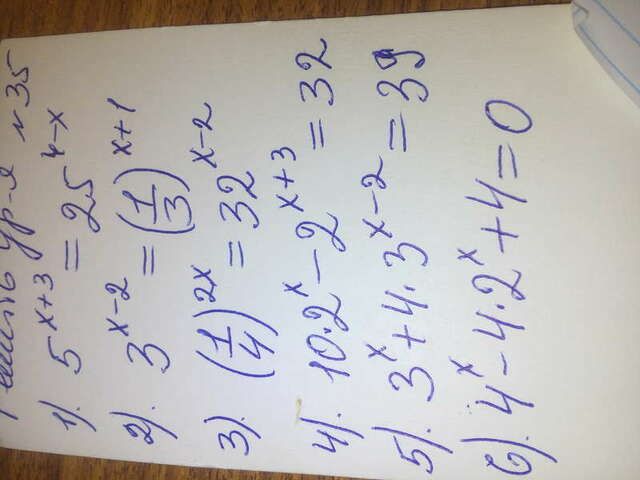 Решить ур-я №35
1). 5^{x+3} = 25^{4-x}
2). 3^{x-2} = (1/3)^{x+1}
3). (1/4)^{2x} = 32^{x-2}
4). 10·2^x - 2^{x+3} = 32
5). 3^x + 4·3^{x-2} = 39
6). 4^x - 4·2^x + 4 = 0